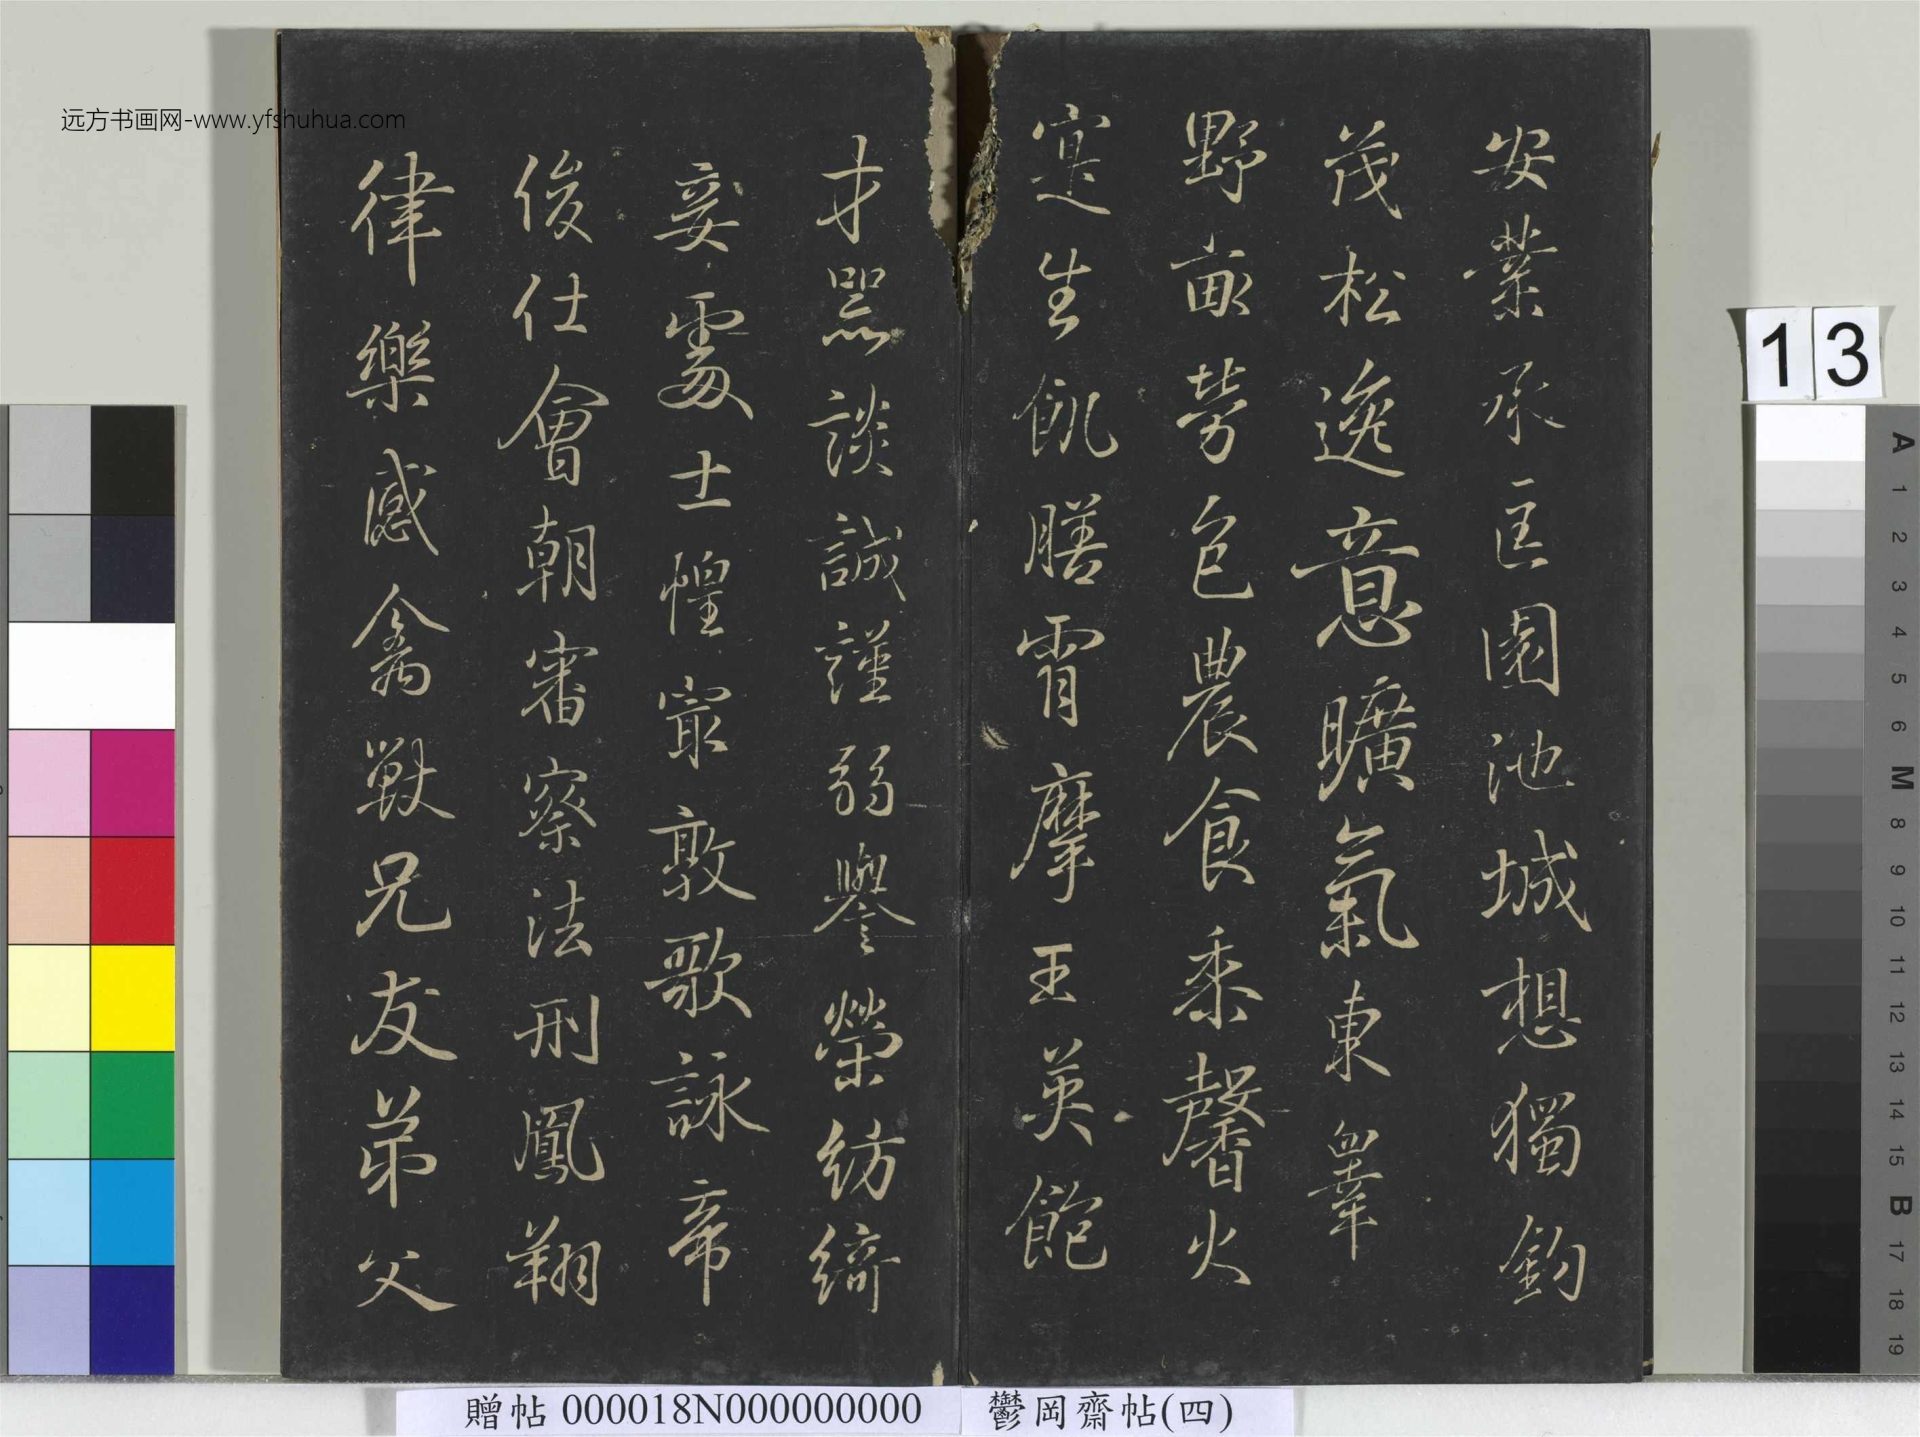 安業承匡園池城想獨鈞
茂松逸意曠氣東睾
野畝勞包農食黍馨火
寔生飢膳宵摩王英飽
才器談誠謹弱譽榮紡綺
妾處士惶寂敦歌詠帝
俊仕會朝審察法刑鳳翔
律樂感禽獸兄友弟父
远方书画网-www.yfshuhua.com
13
A 1 2 3 4 5 6 M 8 9 10 11 12 13 14 15 B 17 18 19
贈帖 000018N000000000
鬱岡齋帖(四)